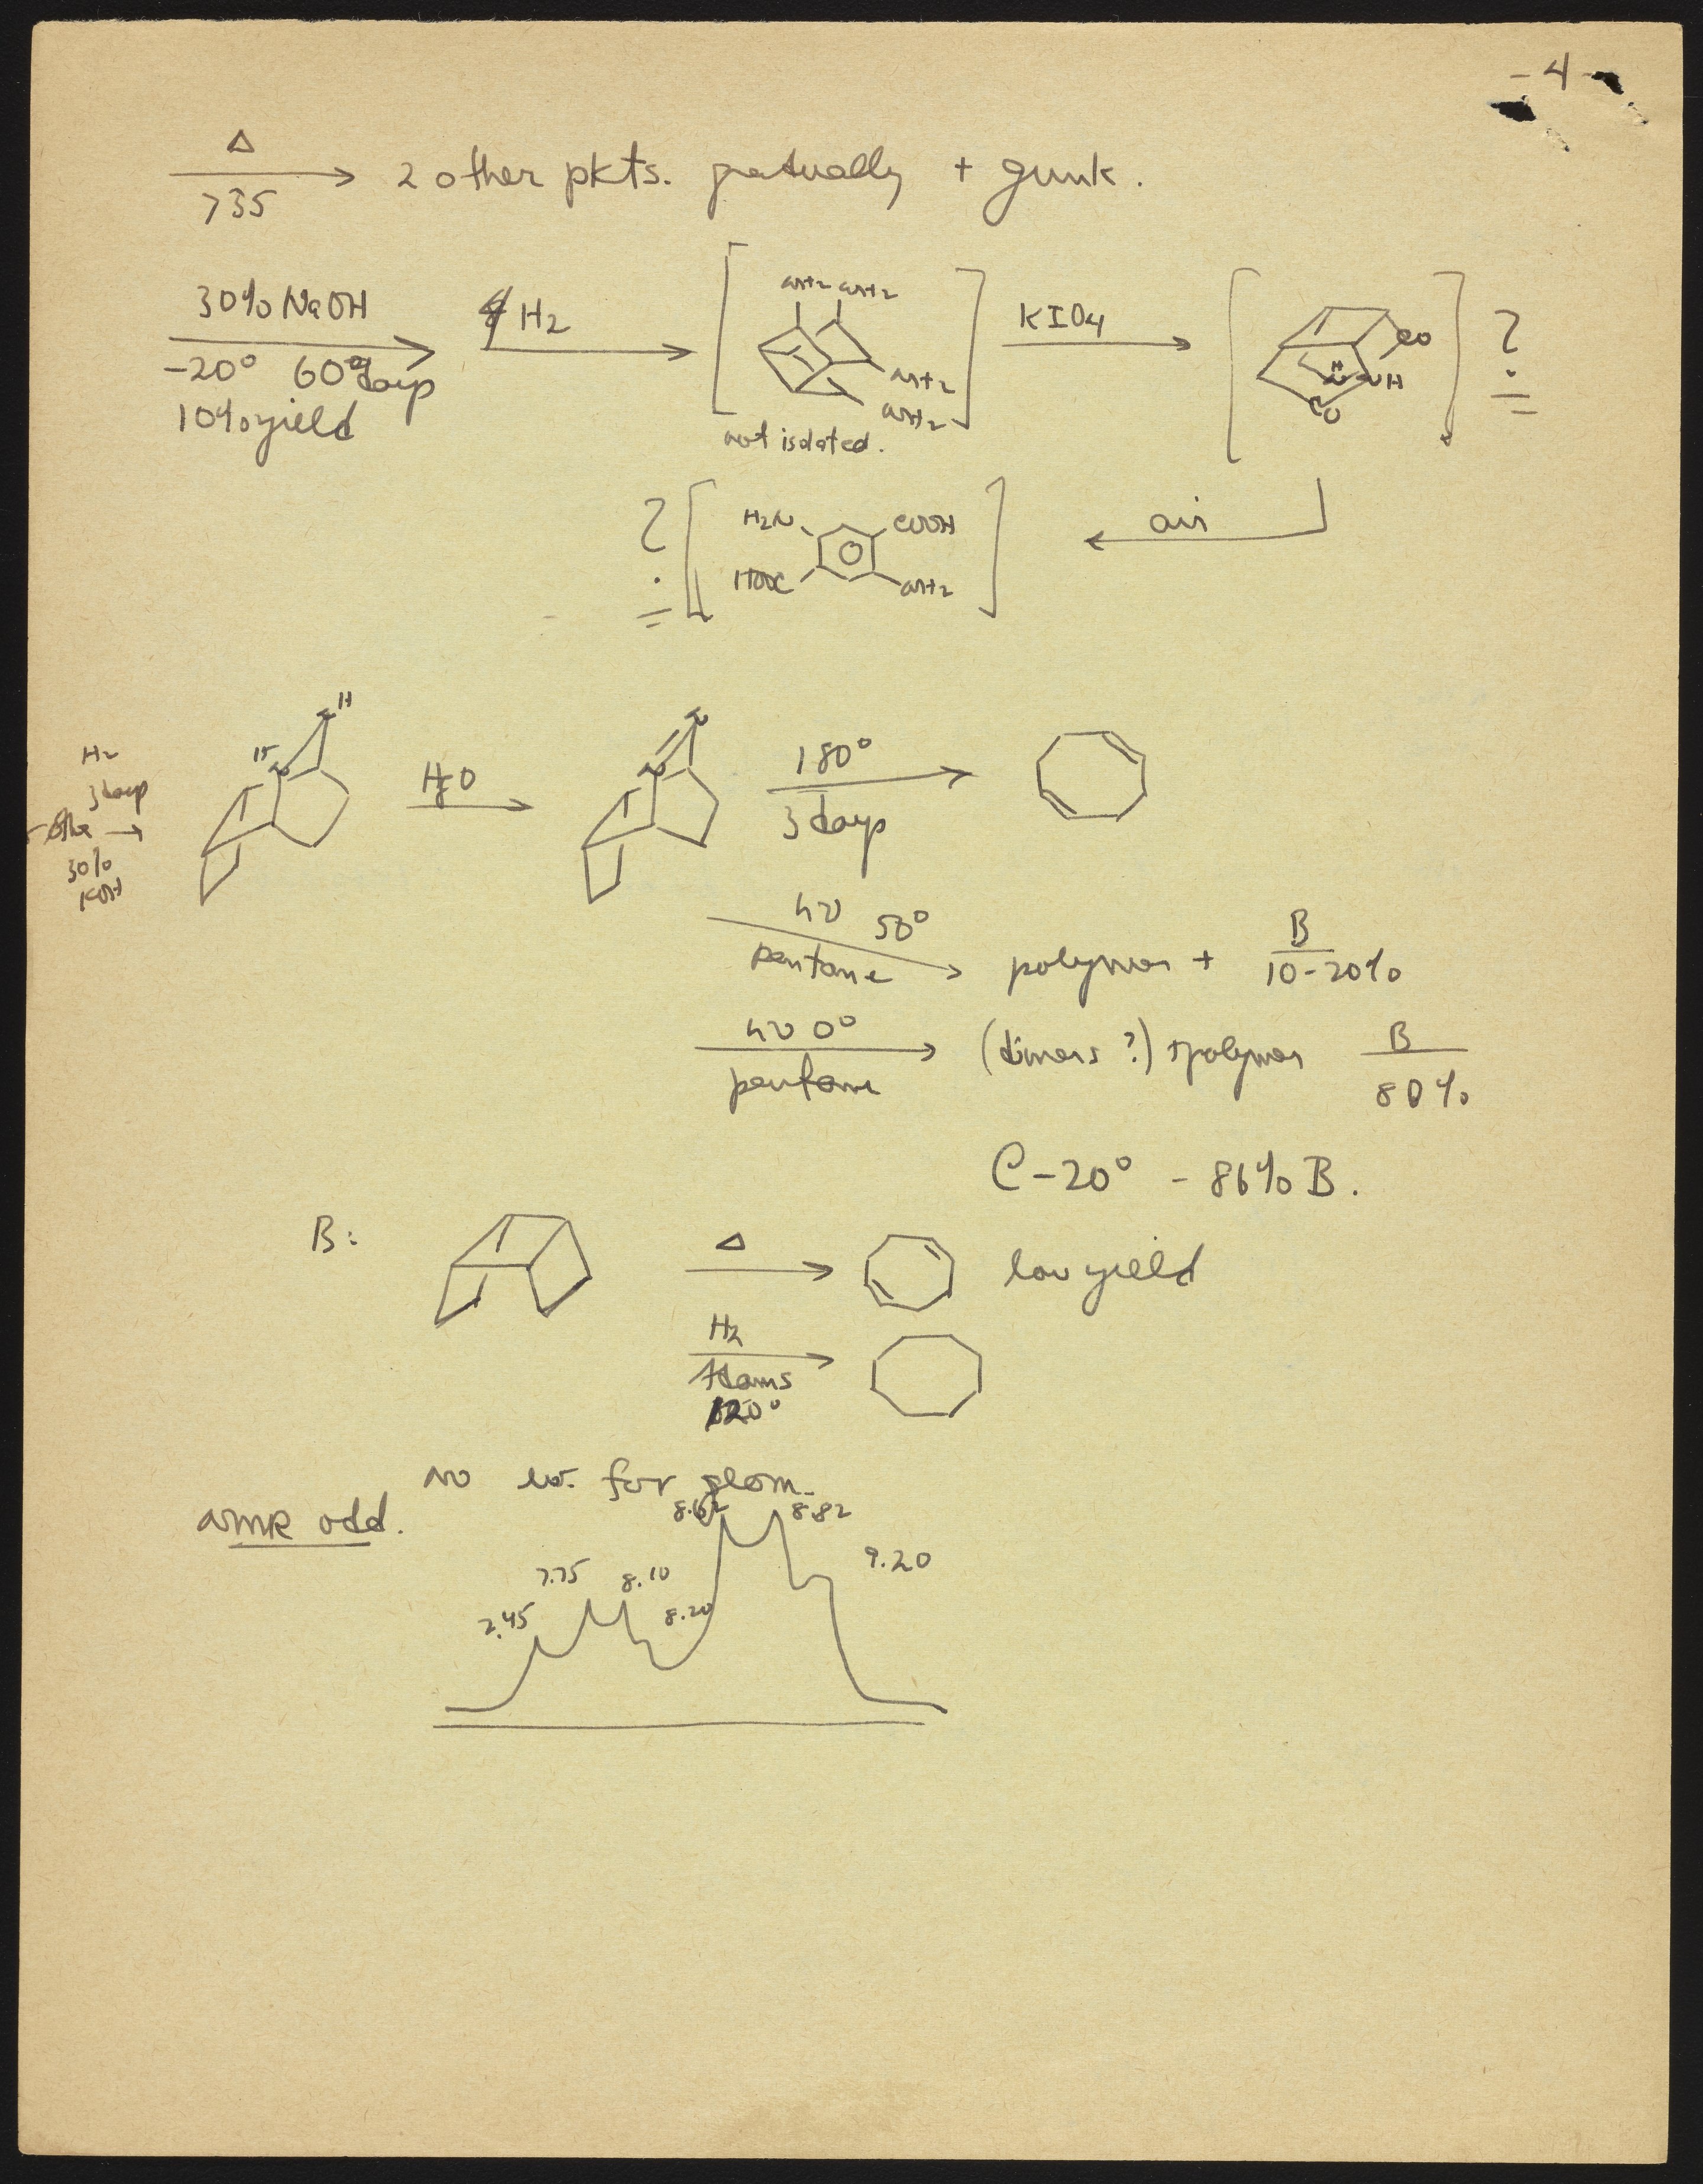 - 4 -
Δ
735
2 other pkts. gradually + gunk.
30% NaOH
-20° 60 days
10% yield
4 H2
NH2 NH2
NH2
NH2
not isolated.
KIO4
CO
NH
CO
?
air
?
H2N COOH
HOOC NH2
H2
3 days
30%
KOH
H
N
N
H2O
N
N
180°
3 days
hν 50°
pentane
polymer + B
10-20%
hν 0°
pentane
(dimers ?) + polymer B
80%
C -20° - 86% B.
B:
Δ
low yield
H2
Adams
120°
no ev. for geom.
NMR odd.
8.62 8.82
9.20
7.75 8.10
8.20
7.45